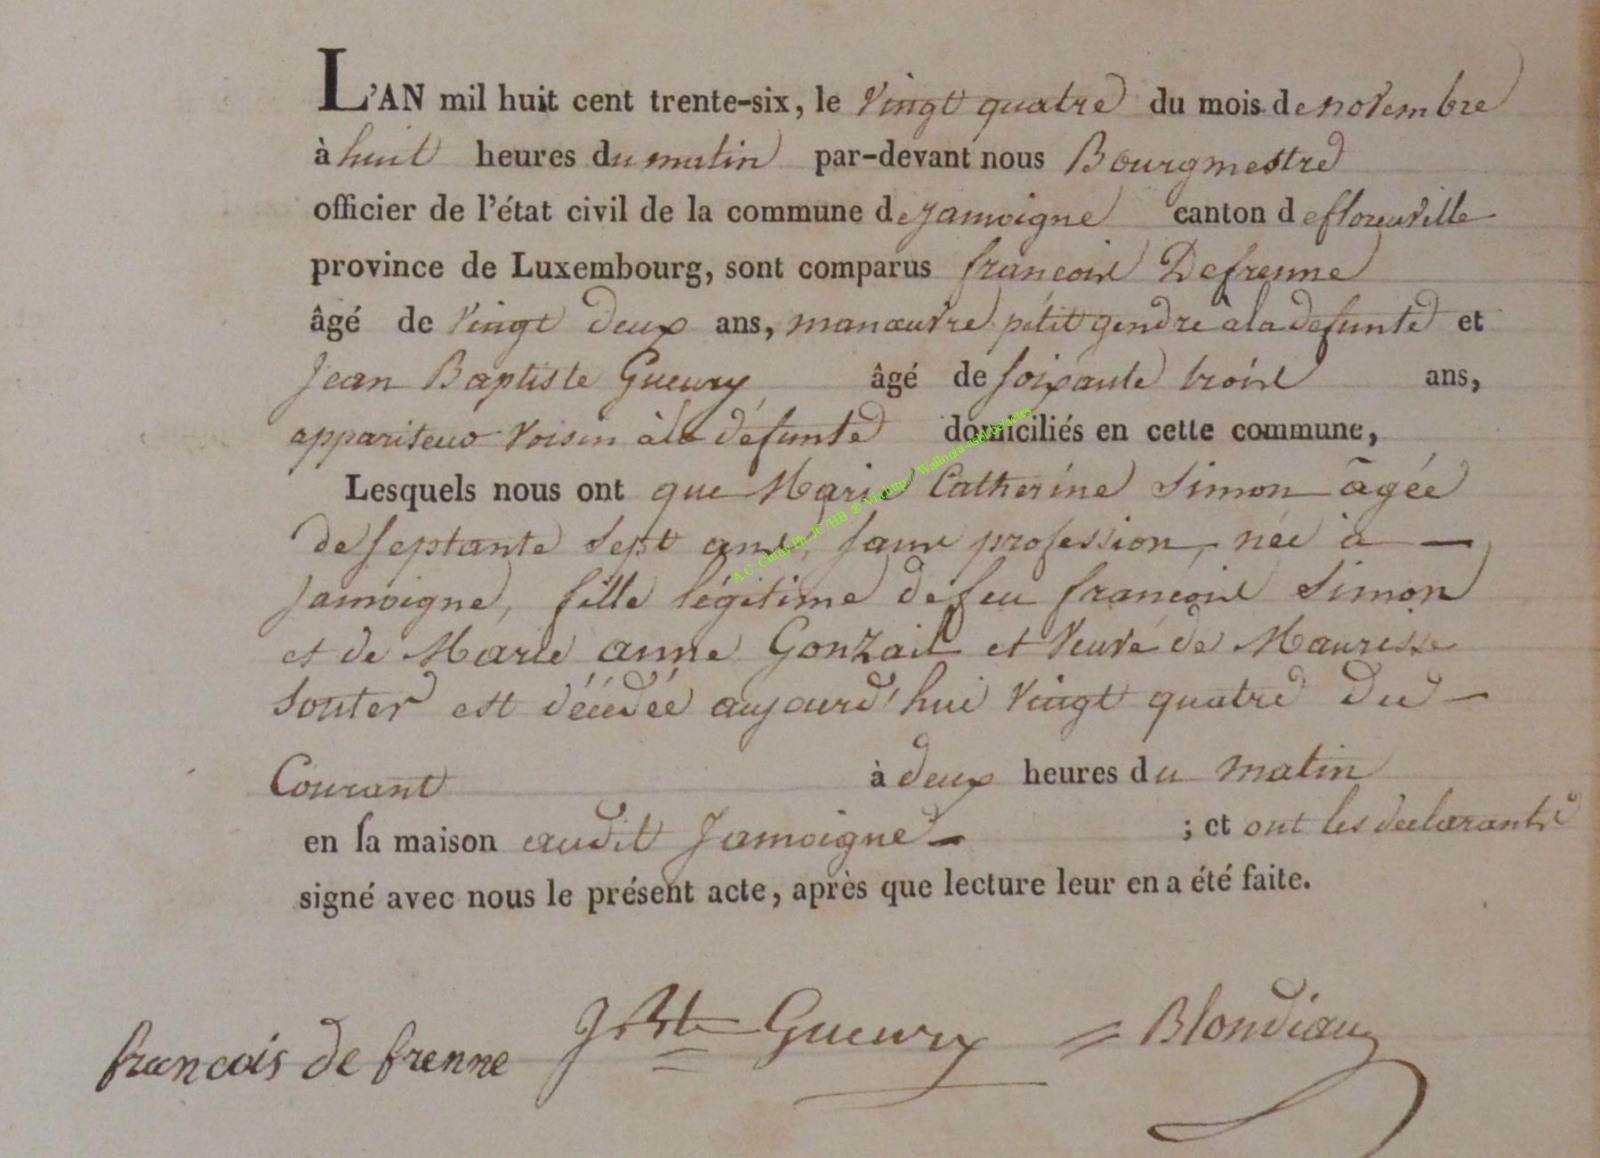 L'AN mil huit cent trente-six, le vingt quatre du mois de novembre
à huit heures du matin par-devant nous Bourgmestre
officier de l'état civil de la commune de jamoigne canton de florenville
province de Luxembourg, sont comparus françois Defrenne
âgé de vingt deux ans, manœuvre petit gendre à la défunte et
Jean Baptiste Gueury âgé de soixante trois ans,
appariteur voisin à la défunte domiciliés en cette commune,
Lesquels nous ont que Marie Catherine Simon âgée
de septante sept ans, sans profession, née à —
Jamoigne, fille légitime de feu françois Simon
et de Marie anne Gonzail et veuve de Maurisse
Souter est décédée aujourd'hui vingt quatre du —
Courant à deux heures du matin
en sa maison audit Jamoigne — ; et ont les déclarants
signé avec nous le présent acte, après que lecture leur en a été faite.
francois de frenne JBte Gueury = Blondiau